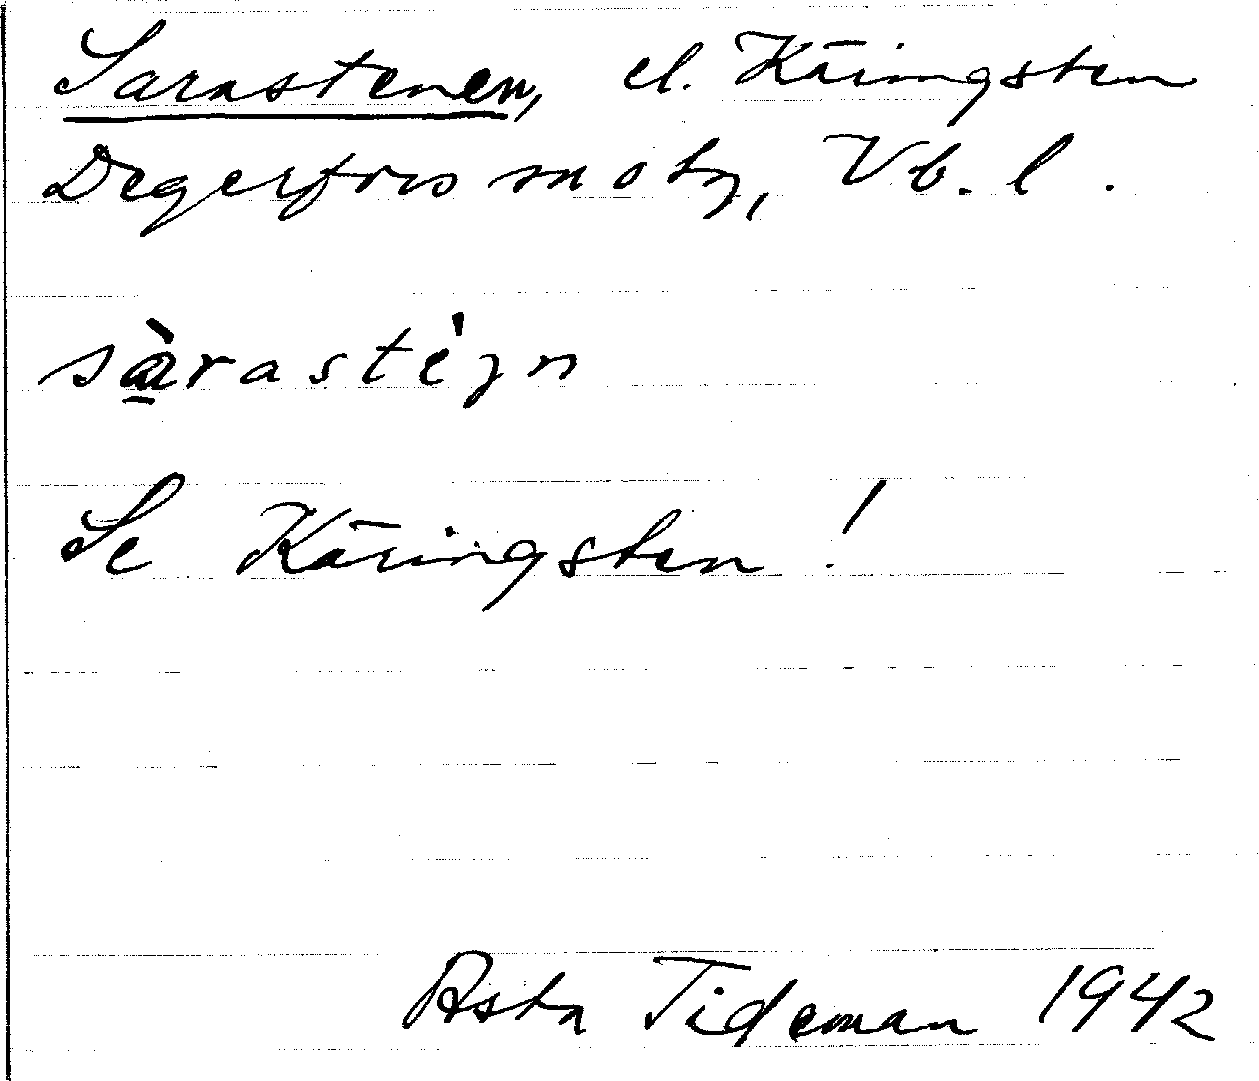 Sarastenen, el. Käringsten
Degerfors sn o tg, Vb. l.
sàrastèjn
Se Käringsten!
Asta Tideman 1942